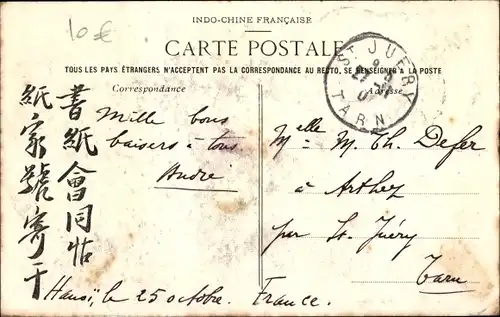 10€
INDO-CHINE FRANÇAISE
CARTE POSTALE
TOUS LES PAYS ÉTRANGERS N'ACCEPTENT PAS LA CORRESPONDANCE AU RECTO, SE RENSEIGNER A LA POSTE
Correspondance
Adresse
ST JUERY
TARN
Mille bons
baisers à tous
André
書紙會同帖
紙家號寄于
Hanoï, le 25 octobre.
Melle M. Th. Defer
à Arthez
par St. Juéry
Tarn
France.